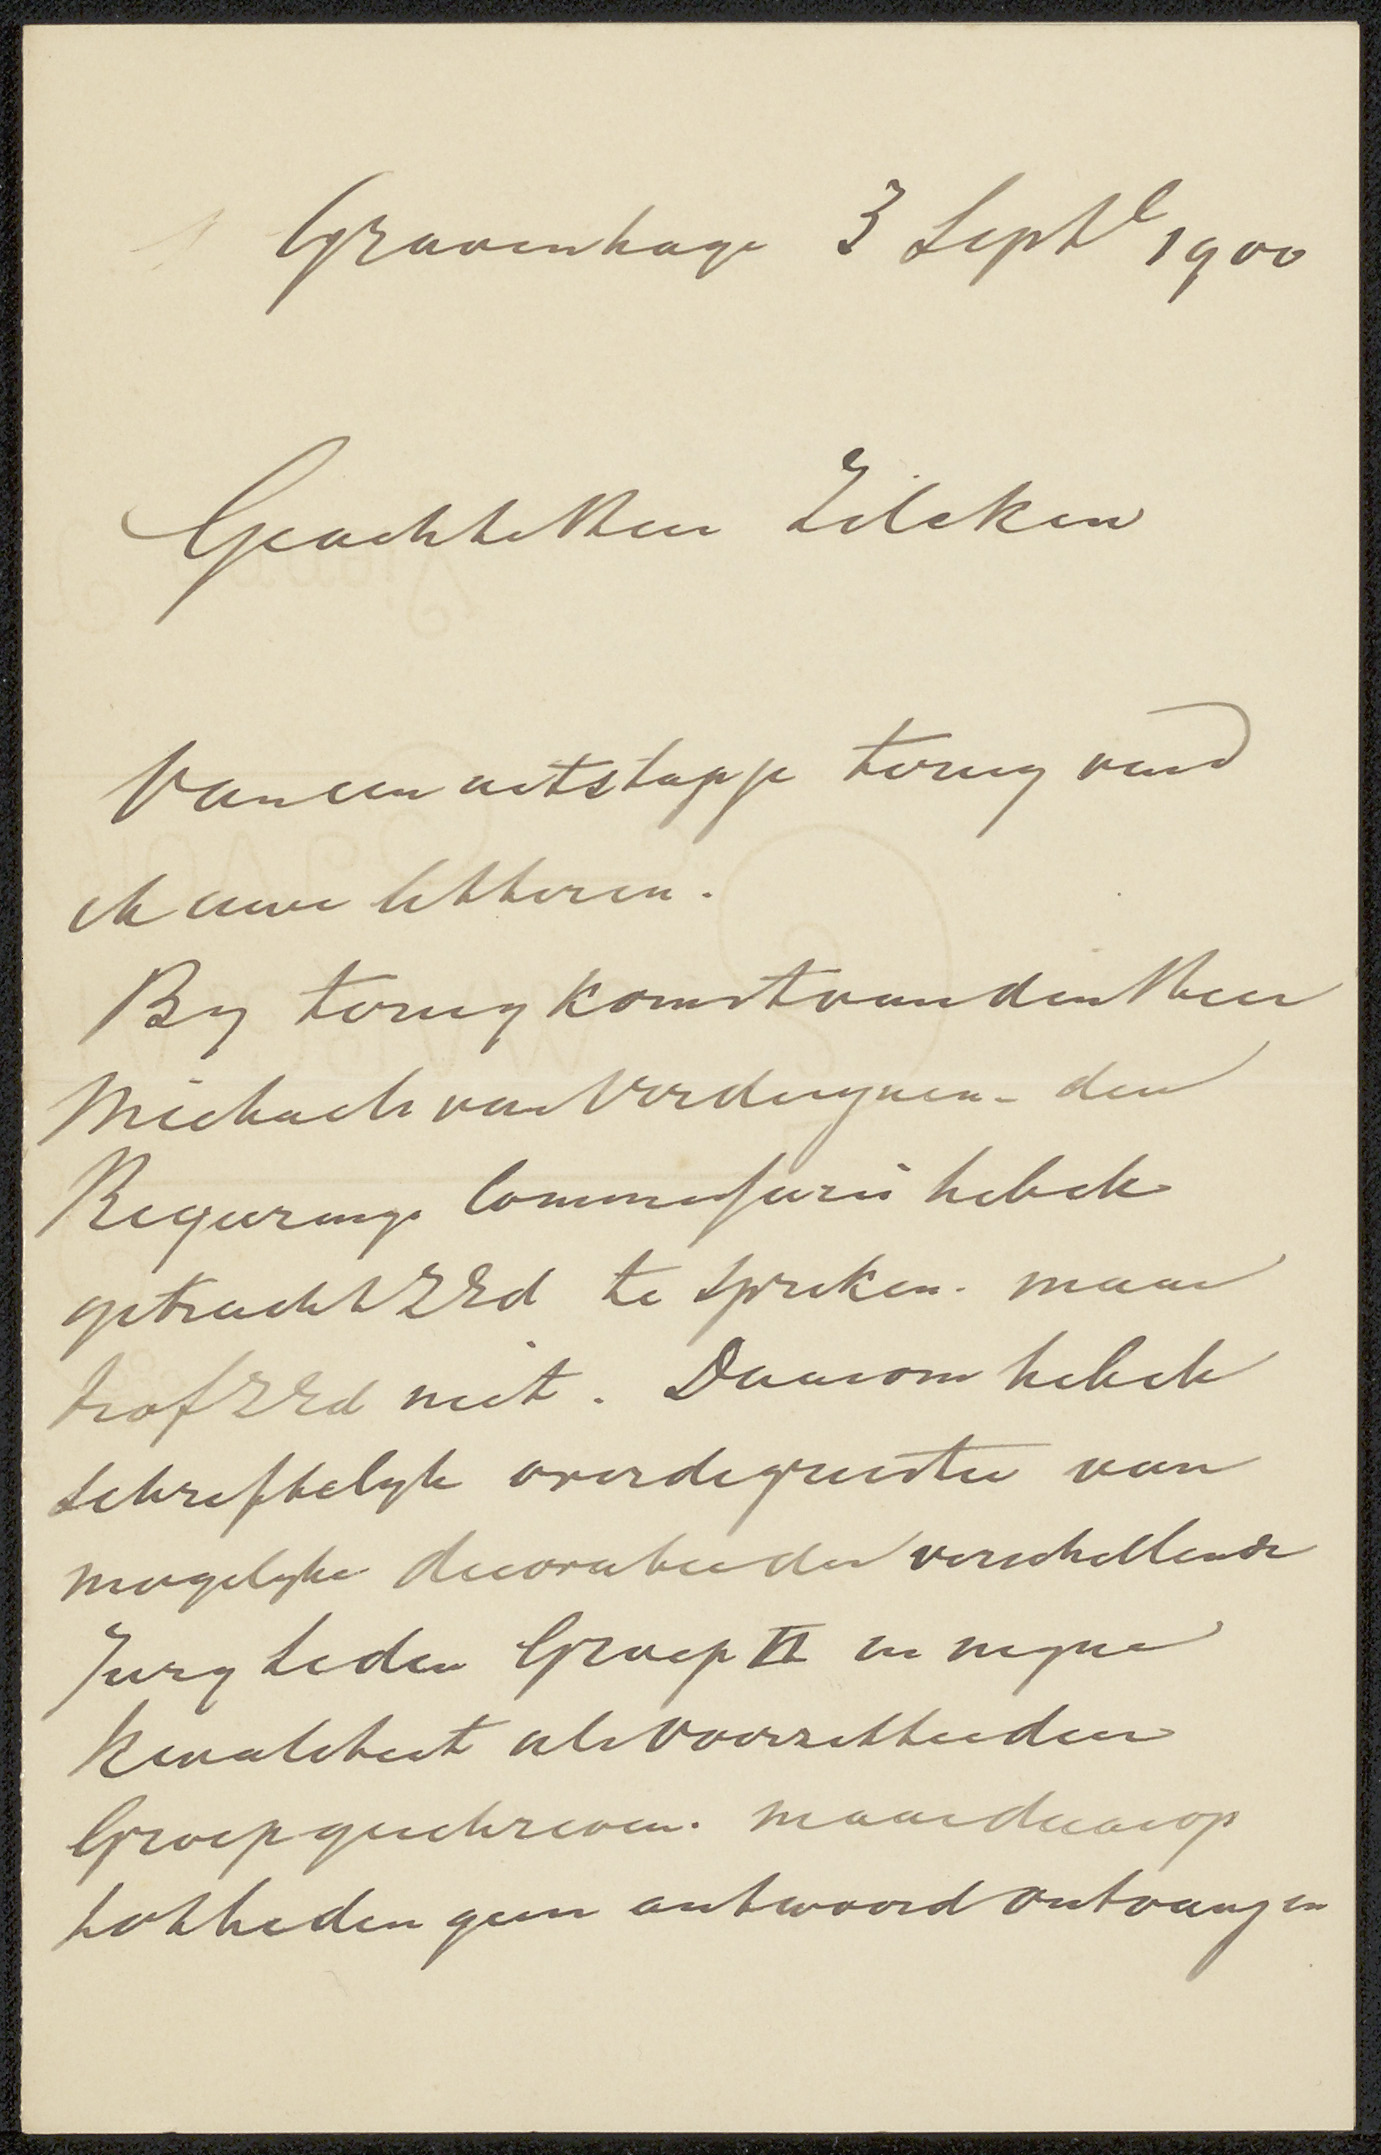 Gravenhage 3 Septr 1900
Geachte Heer Zilcken
Van een uitstapje terug vond
ik uwe letteren.
By terugkomst van den Heer
Michaels van Verduynen - den
Regeerings Commissaris heb ik
getracht ZEd te spreken - maar
trof ZEd niet. Daarom heb ik
schriftelyk over de questie van
mogelyke decoratie der verschillende
Jury Leden Groep II in myne
kwaliteit als Voorzitter dier
Groep geschreven. maar daarop
tot heden geen antwoord ontvangen